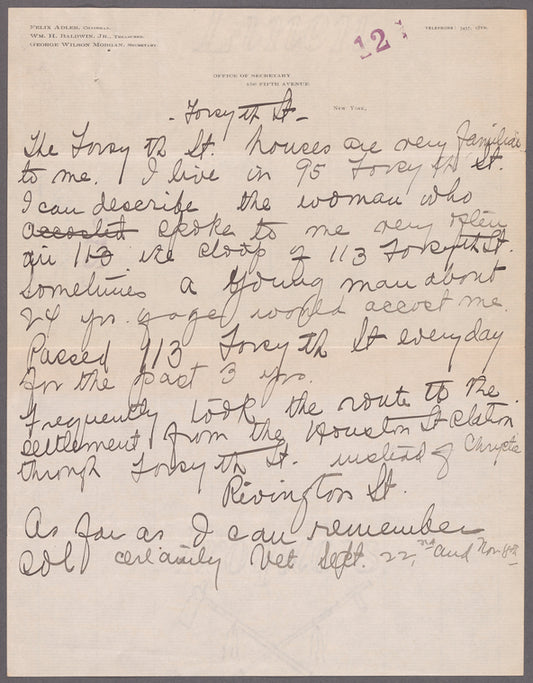 FELIX ADLER, CHAIRMAN.
WM. H. BALDWIN, JR., TREASURER.
GEORGE WILSON MORGAN, SECRETARY.
12
TELEPHONE: 3427, 18TH.
OFFICE OF SECRETARY
156 FIFTH AVENUE.
NEW YORK,
- Forsyth St -
The Forsyth St. houses are very familiar
to me. I live in 95 Forsyth St.
I can describe the woman who
accosted spoke to me very often
in 113 the stoop of 113 Forsyth St.
Sometimes a young man about
24 yrs. of age would accost me.
Passed 113 Forsyth St everyday
for the past 3 yrs.
Frequently took the route to the
settlement from the Houston St station
through Forsyth St. instead of Chrystie
Rivington St.
As far as I can remember
certainly bet Sept. 22,nd and Nov. 8th